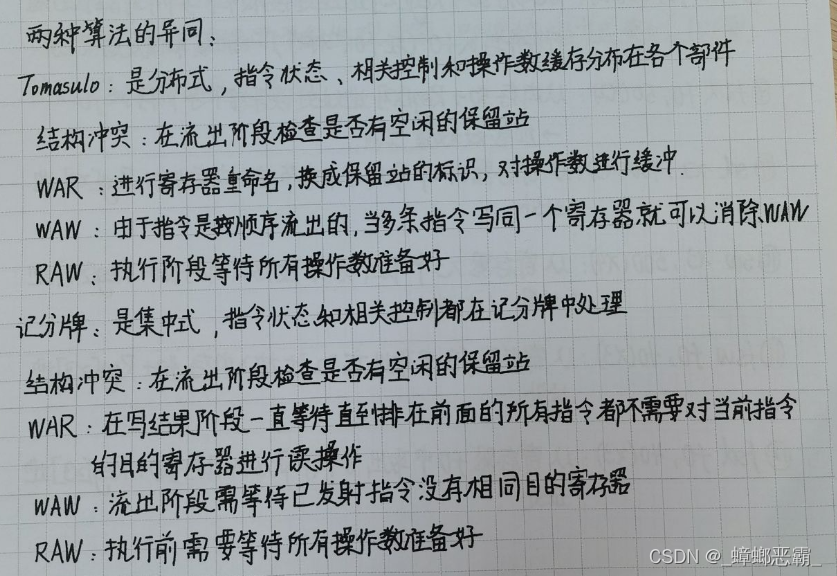 两种算法的异同：
Tomasulo：是分布式，指令状态、相关控制和操作数缓存分布在各个部件
结构冲突：在流出阶段检查是否有空闲的保留站
WAR：进行寄存器重命名，换成保留站的标识，对操作数进行缓冲.
WAW：由于指令是按顺序流出的，当多条指令写同一个寄存器就可以消除WAW
RAW：执行阶段等待所有操作数准备好
记分牌：是集中式，指令状态和相关控制都在记分牌中处理
结构冲突：在流出阶段检查是否有空闲的保留站
WAR：在写结果阶段一直等待直到排在前面的所有指令都不需要对当前指令
的目的寄存器进行读操作
WAW：流出阶段需等待已发射指令没有相同目的寄存器
RAW：执行前需要等待所有操作数准备好
CSDN @_蟑螂恶霸_